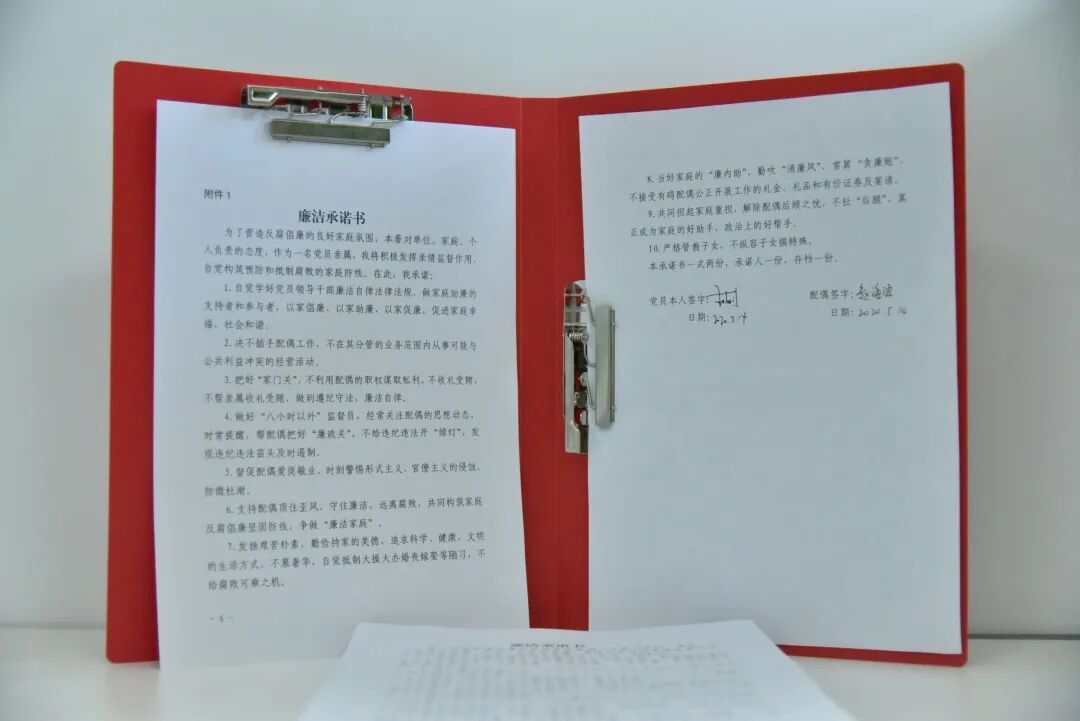 附件 1
廉洁承诺书
为了营造反腐倡廉的良好家庭氛围，本着对单位、家庭、个
人负责的态度，作为一名党员亲属，我将积极发挥亲情监督作用，
自觉构筑预防和抵制腐败的家庭防线。在此，我承诺：
1. 自觉学好党员领导干部廉洁自律法律法规，做家庭助廉的
支持者和参与者，以家倡廉、以家助廉、以家促廉，促进家庭幸
福、社会和谐。
2. 决不插手配偶工作，不在其分管的业务范围内从事可能与
公共利益冲突的经营活动。
3. 把好“家门关”，不利用配偶的职权谋取私利，不收礼受贿，
不帮亲属收礼受贿，做到遵纪守法，廉洁自律。
4. 做好“八小时以外”监督员，经常关注配偶的思想动态，
时常提醒，帮配偶把好“廉政关”，不给违纪违法开“绿灯”，发
现违纪违法苗头及时遏制。
5. 督促配偶爱岗敬业，时刻警惕形式主义、官僚主义的侵蚀，
防微杜渐。
6. 支持配偶顶住歪风，守住廉洁，远离腐败，共同构筑家庭
反腐倡廉坚固防线，争做“廉洁家庭”。
7. 发扬艰苦朴素、勤俭持家的美德，追求科学、健康、文明
的生活方式，不慕奢华，自觉抵制大操大办婚丧嫁娶等陋习，不
给腐败可乘之机。
- 4 -
8. 当好家庭的“廉内助”，勤吹“清廉风”，常算“贪廉账”，
不接受有碍配偶公正开展工作的礼金、礼品和有价证券及宴请。
9. 共同担起家庭重担，解除配偶后顾之忧，不扯“后腿”，真
正成为家庭的好助手，政治上的好帮手。
10. 严格管教子女，不纵容子女搞特殊。
本承诺书一式两份，承诺人一份，存档一份。
党员本人签字： 配偶签字：赵海滨
日期：2020.5.14 日期：2020.5.14
廉洁承诺书